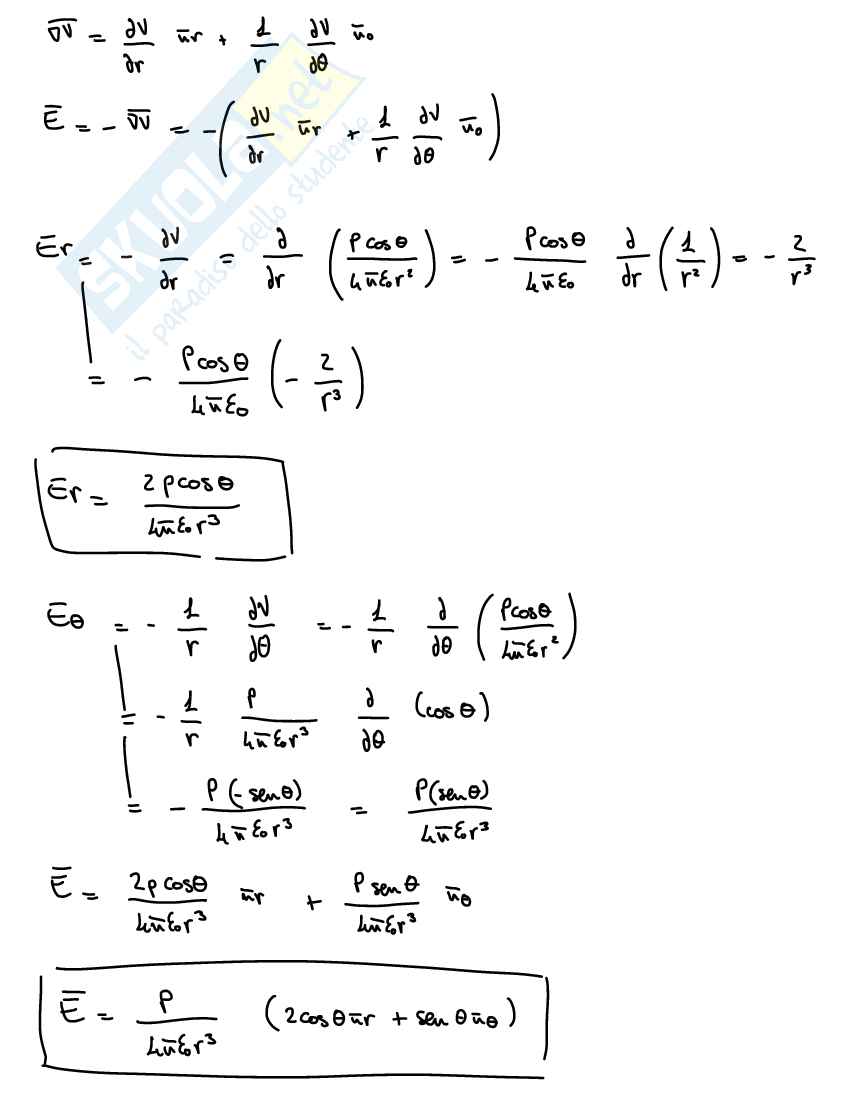 ∇̅V̅ = ∂V/∂r u̅r + 1/r ∂V/∂θ u̅₀
E̅ = - ∇̅V̅ = -(∂V/∂r u̅r + 1/r ∂V/∂θ u̅₀)
SKUOLA.net
il paradiso dello studente
Er = - ∂V/∂r = ∂/∂r (P cos θ / 4π̅ε₀r²) = - P cos θ / 4π̅ε₀ ∂/∂r (1/r²) = - 2/r³
= - P cos θ / 4π̅ε₀ (- 2/r³)
Er = 2 p cos θ / 4π̅ε₀r³
Eθ = - 1/r ∂V/∂θ = - 1/r ∂/∂θ (P cos θ / 4π̅ε₀r²)
= - 1/r P / 4π̅ε₀r³ ∂/∂θ (cos θ)
= - P (- sen θ) / 4π̅ε₀r³ = P (sen θ) / 4π̅ε₀r³
E̅ = 2p cos θ / 4π̅ε₀r³ u̅r + P sen θ / 4π̅ε₀r³ u̅θ
E̅ = P / 4π̅ε₀r³ (2 cos θ u̅r + sen θ u̅θ)